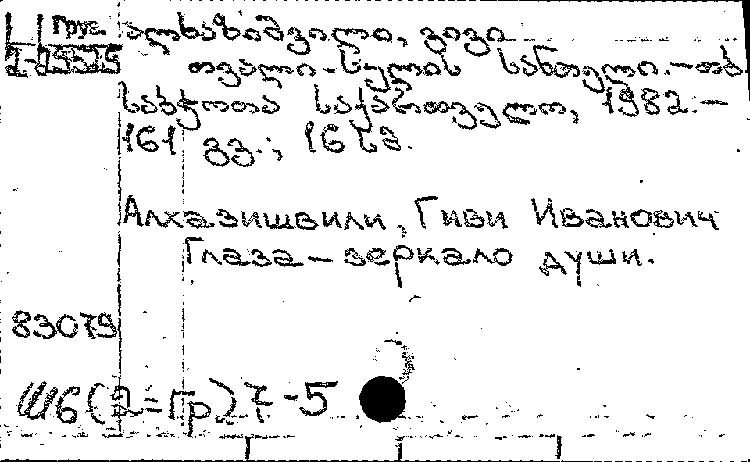 Груз. ალხაზიშვილი, გივი
2-15515 თვალი-სულის სანთელი.-თბ
საბჭოთა საქართველო, 1982.-
161 გვ.; 16 სმ.
Алхазишвили, Гиви Иванович
Глаза-зеркало души.
83079
Ш6(2=Гр)7-5